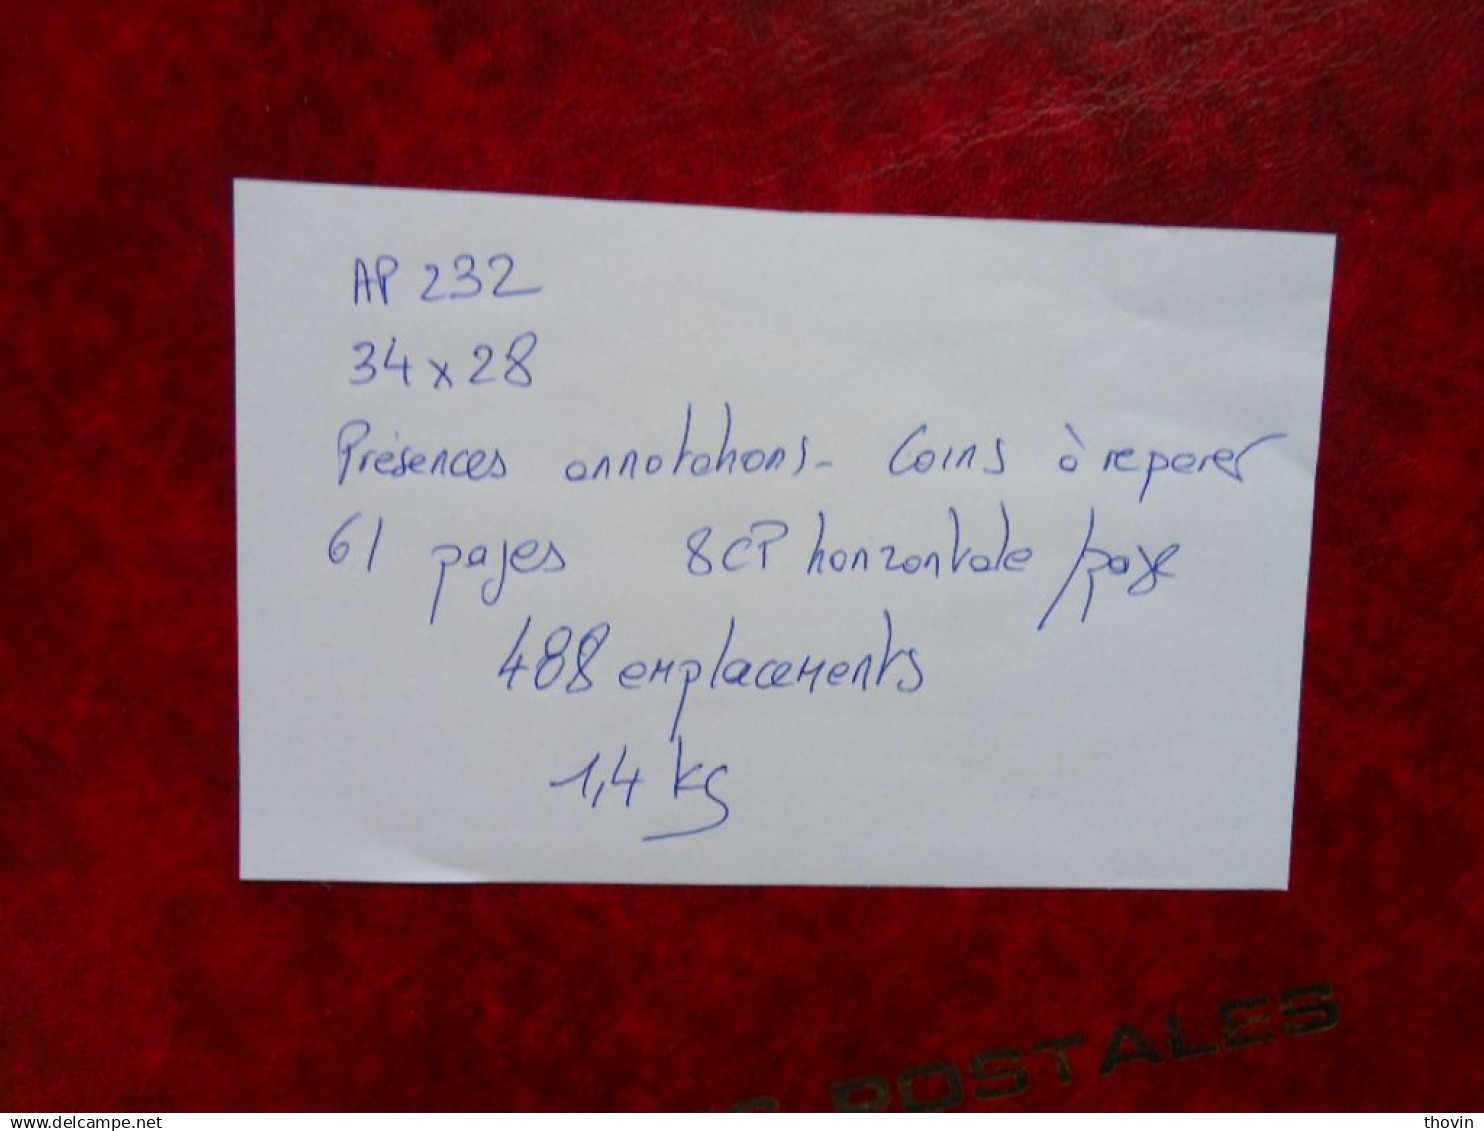 AP 232
34 x 28
Présences annotations - Coins à reparer
61 pages 8 CP horizontale / page
488 emplacements
1,4 kg
POSTALES
delcampe.net
thovin